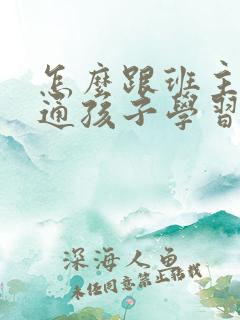 怎麼跟班主
通孩子學習
深海人魚
未經同意禁止轉載